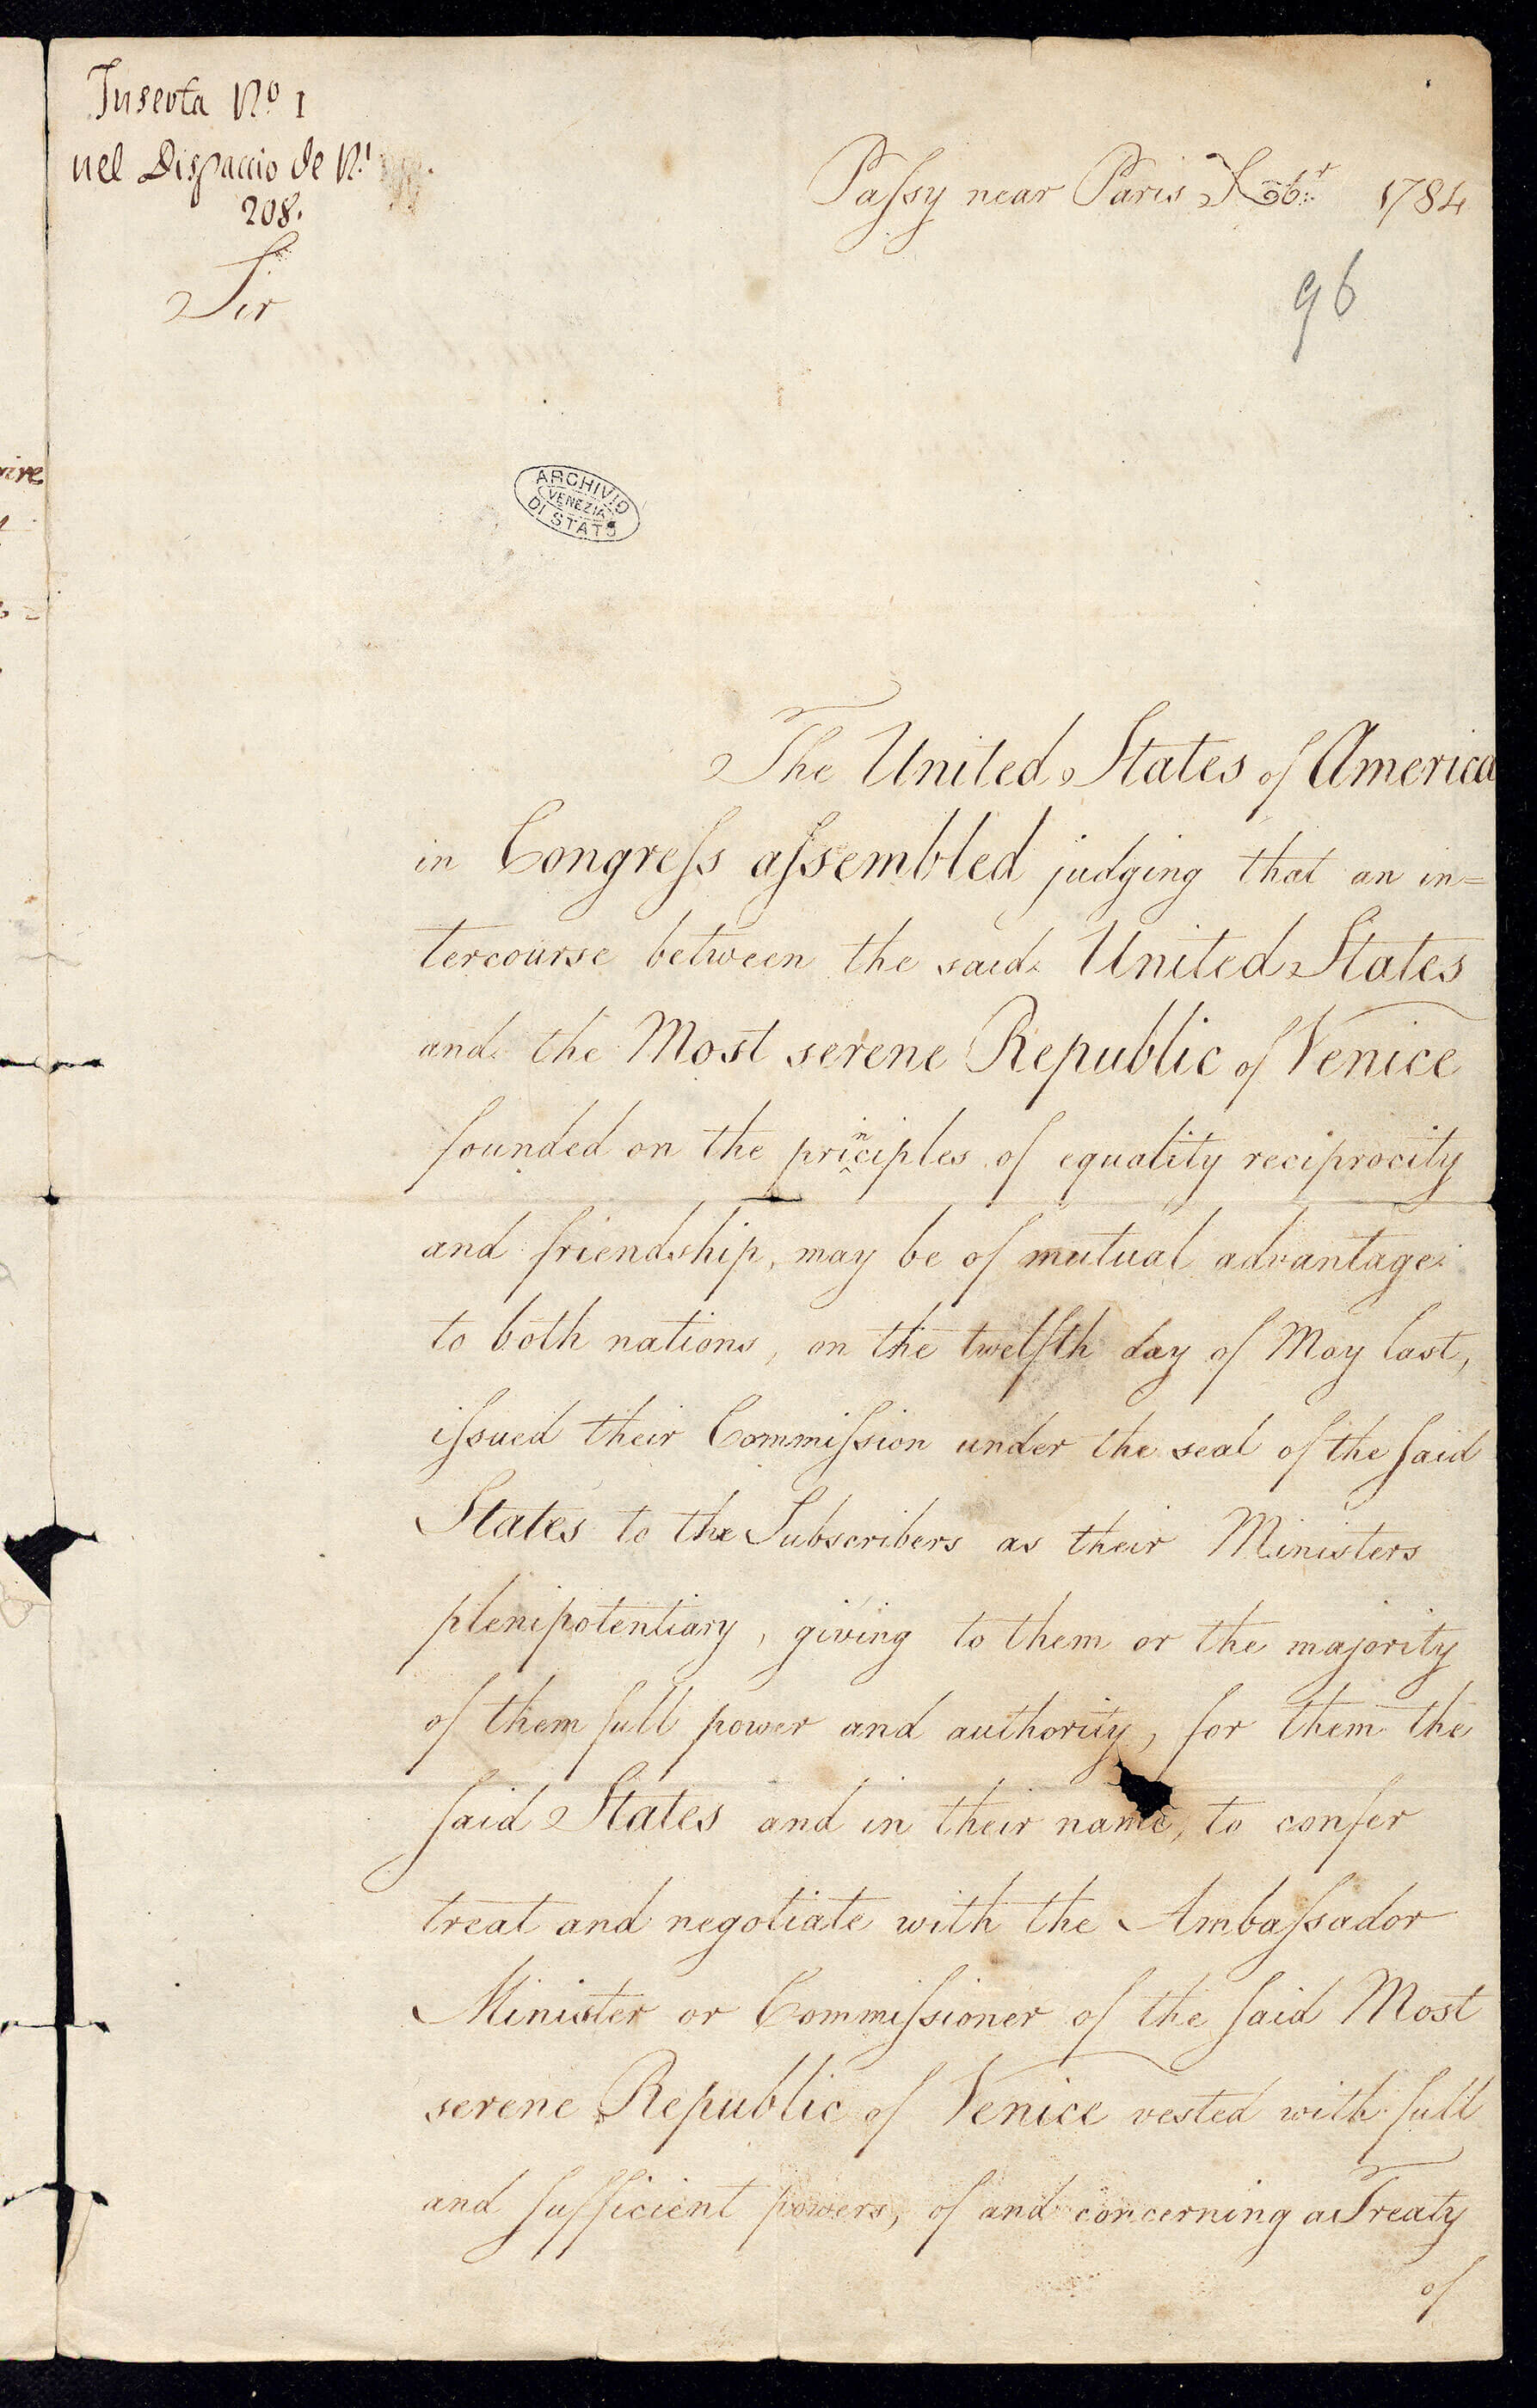 Inserta Nº 1
nel Dispaccio de N.¹
208.
Paſsy near Paris 1784
96
Sir
ARCHIVIO
VENEZIA
DI STATO
The United States of America
in Congreſs aſsembled judging that an in=
tercourse between the said United States
and the Most serene Republic of Venice
founded on the principles of equality reciprocity
and friendship, may be of mutual advantage
to both nations, on the twelfth day of May last,
iſsued their Commiſsion under the seal of the ſaid
States to the Subscribers as their Ministers
plenipotentiary, giving to them or the majority
of them full power and authority, for them the
ſaid States and in their name, to confer
treat and negotiate with the Ambaſsador
Minister or Commiſsioner of the ſaid Most
serene Republic of Venice vested with full
and ſufficient powers, of and concerning a Treaty
of